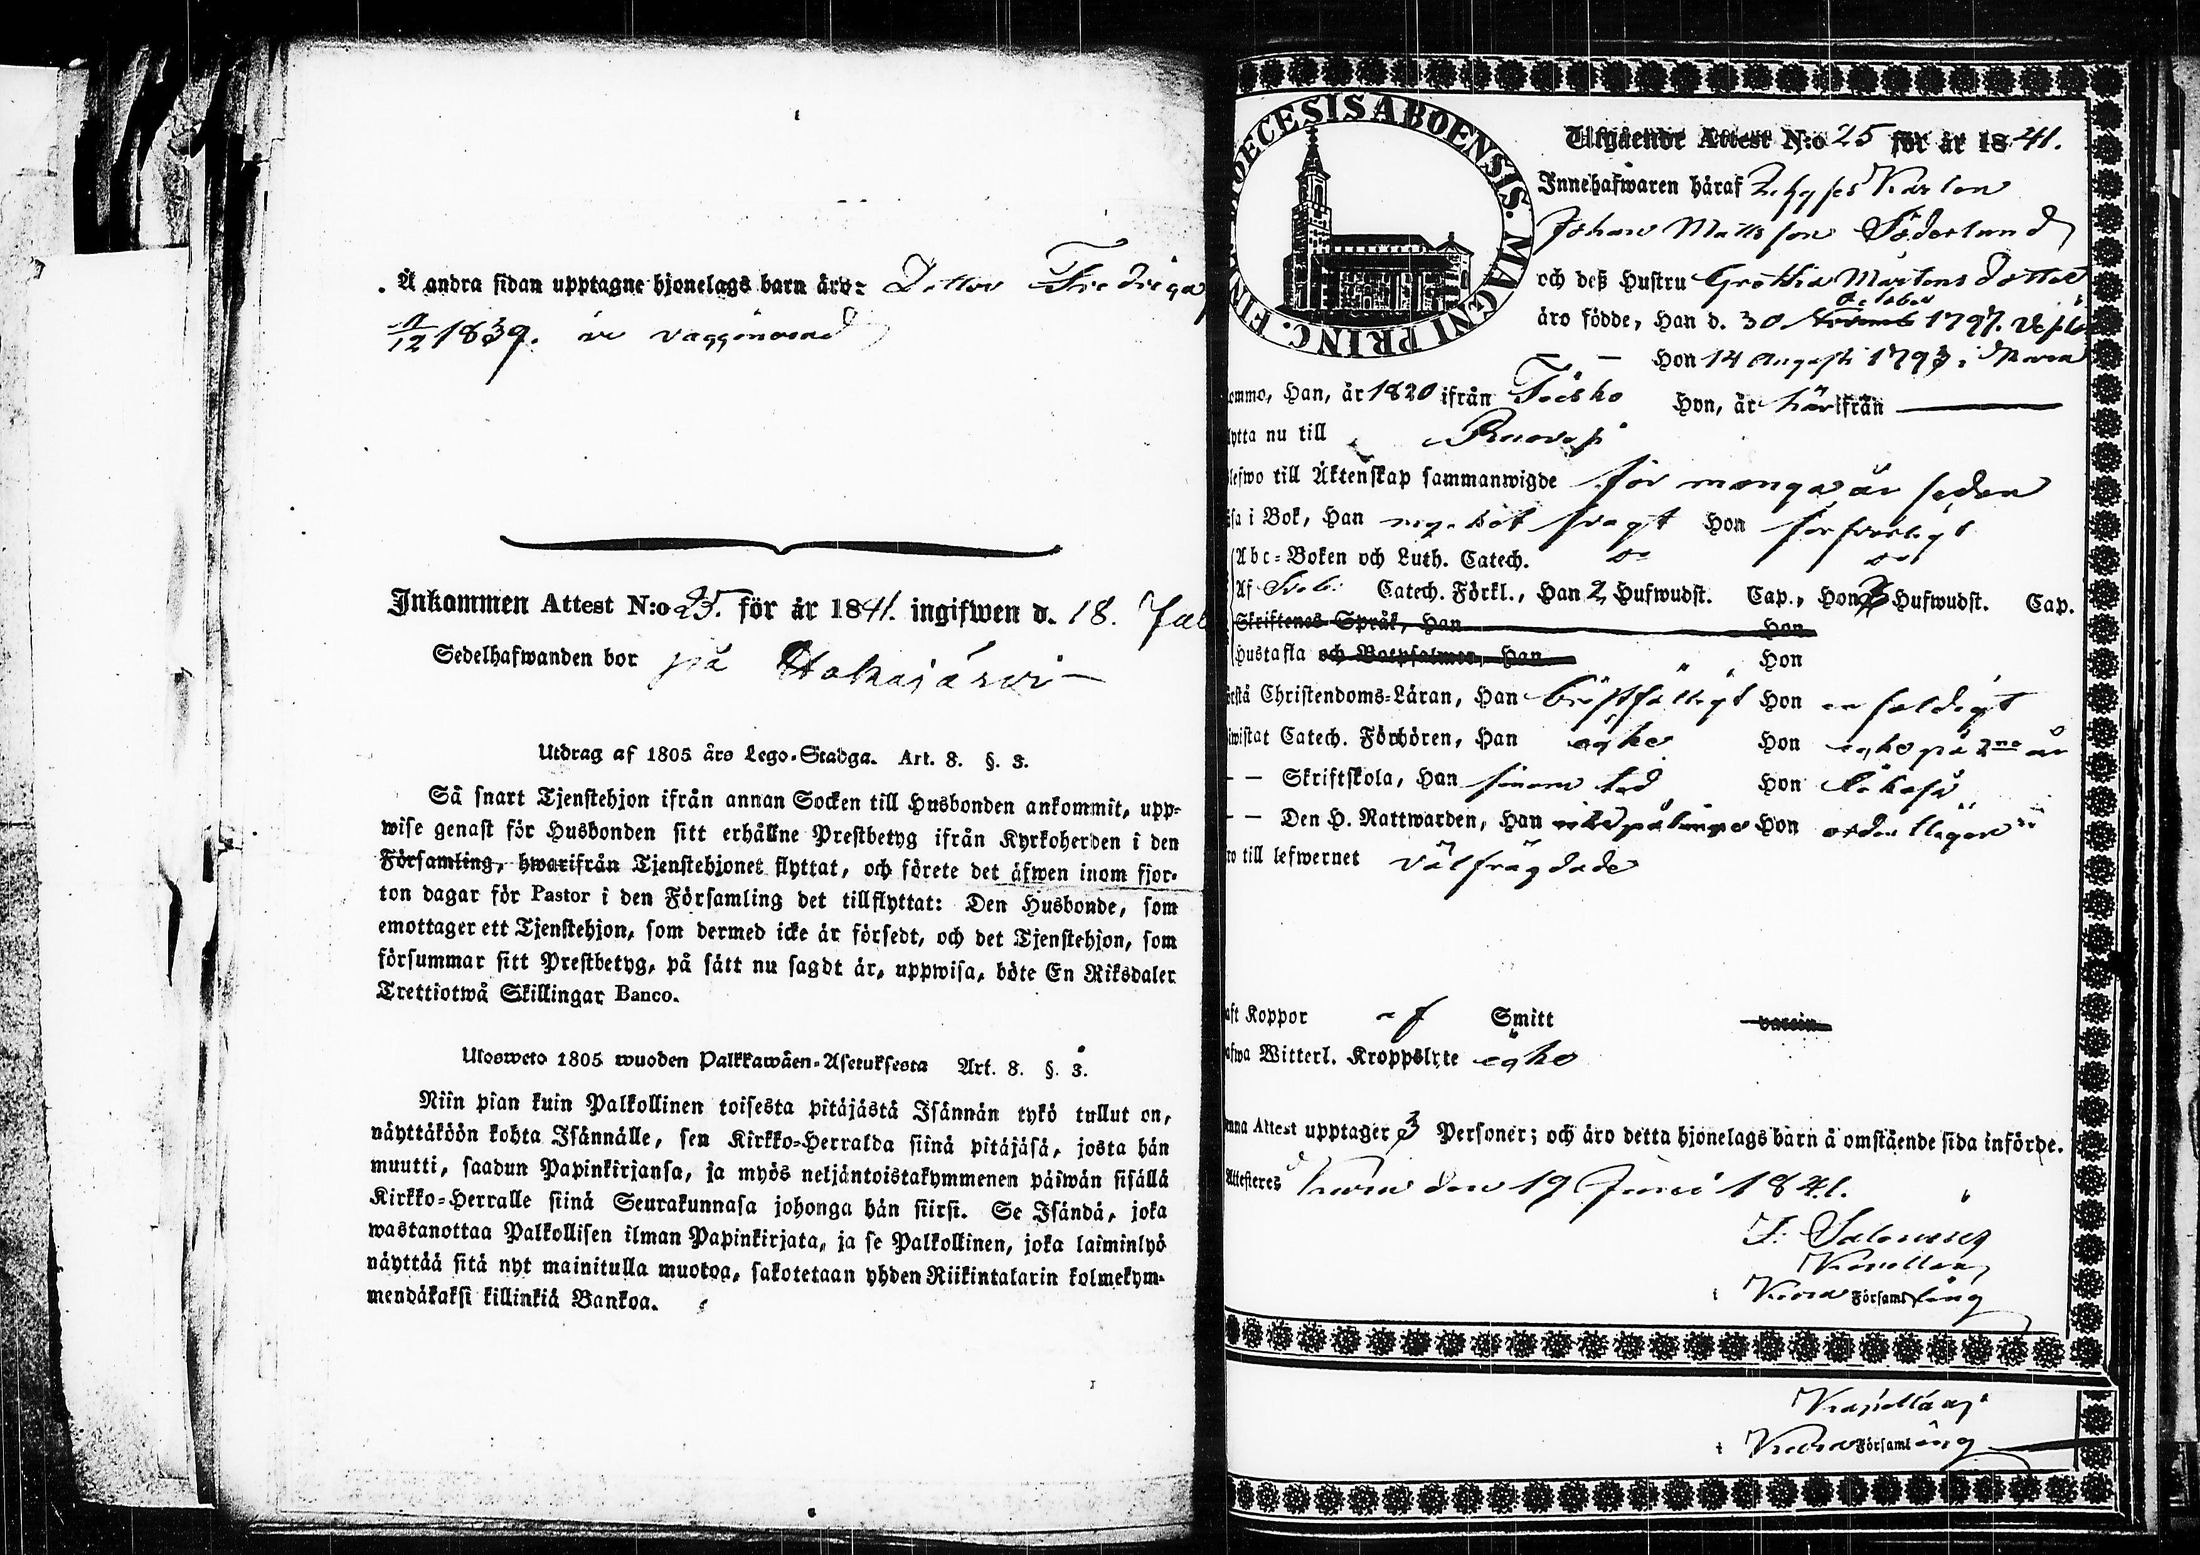 Å andra sidan upptagne hjonelags barn äro: Dotter Fredrica
1839. är vaggonerad
Inkommen Attest N:o 25. för år 1841. ingifwen d. 18. Jul
Sedelhafwanden bor på
Utdrag af 1805 års Lego-Stadga. Art. 8. §. 3.
Så snart Tjenstehjon ifrån annan Socken till Husbonden ankommit, upp-
wise genast för Husbonden sitt erhållne Prestbetyg ifrån Kyrkoherden i den
Församling, hwarifrån Tjenstehjonet flyttat, och förete det äfwen inom fjor-
ton dagar för Pastor i den Församling det tillflyttat: Den Husbonde, som
emottager ett Tjenstehjon, som dermed icke är försedt, och det Tjenstehjon, som
försummar sitt Prestbetyg, på sätt nu sagdt är, uppwisa, böte En Riksdaler
Trettiotwå Skillingar Banco.
Ulosweto 1805 wuoden Palkkawäen-Asetuksesta Art. 8. §. 3.
Niin pian kuin Palkollinen toisesta pitäjästä Isännän tykö tullut on,
näyttäköön kohta Isännälle, sen Kirkko-Herralda siinä pitäjäsä, josta hän
muutti, saadun Papinkirjansa, ja myös neljäntoistakymmenen päiwän sisällä
Kirkko-Herralle siinä Seurakunnasa johonga hän siirsi. Se Isändä, joka
wastanottaa Palkollisen ilman Papinkirjata, ja se Palkollinen, joka laiminlyö
näyttää sitä nyt mainitulla muotoa, sakotetaan yhden Riikintalarin kolmekym-
mendäkaksi killinkiä Bankoa.
DIOECESIS ABOENSIS. MAGNI PRINC. FIN
Utgående Attest N:o 25 för år 1841.
Innehafwaren häraf Karlen
Johan Mattsson Söderlund
och deß Hustru Grethа Mårtensdotter
October
äro födde, Han d. 30 1797.
— Hon 14 Augusti 1793 i
ommo, Han, år 1820 ifrån Hon, är härifrån
lytta nu till Ruovesi
lefwo till Äktenskap sammanwigde för många år sedan
sa i Bok, Han något svagt Hon försvarligt
Abc-Boken och Luth. Catech.
Af Catech. Förkl., Han 2 Hufwudst. Cap., Hon Hufwudst. Cap.
Skriftenes Språk, Han Hon
Hustafla och Botpsalmer, Han Hon
rstå Christendoms-Läran, Han bristfälligt Hon enfaldigt
iwistat Catech. Förhören, Han Hon på 2ne år
— — Skriftskola, Han sinom tid Hon likaså
— — Den H. Nattwarden, Han Hon ordentligare
ro till lefwernet välfrägdade
aft Koppor af Smitt
afwa Witterl. Kroppslyte
nna Attest upptager 3 Personer; och äro detta hjonelags barn å omstående sida införde.
Attesteres den 19 Junii 1841.
Kapellan
i Församling
Kapellan
i Församling